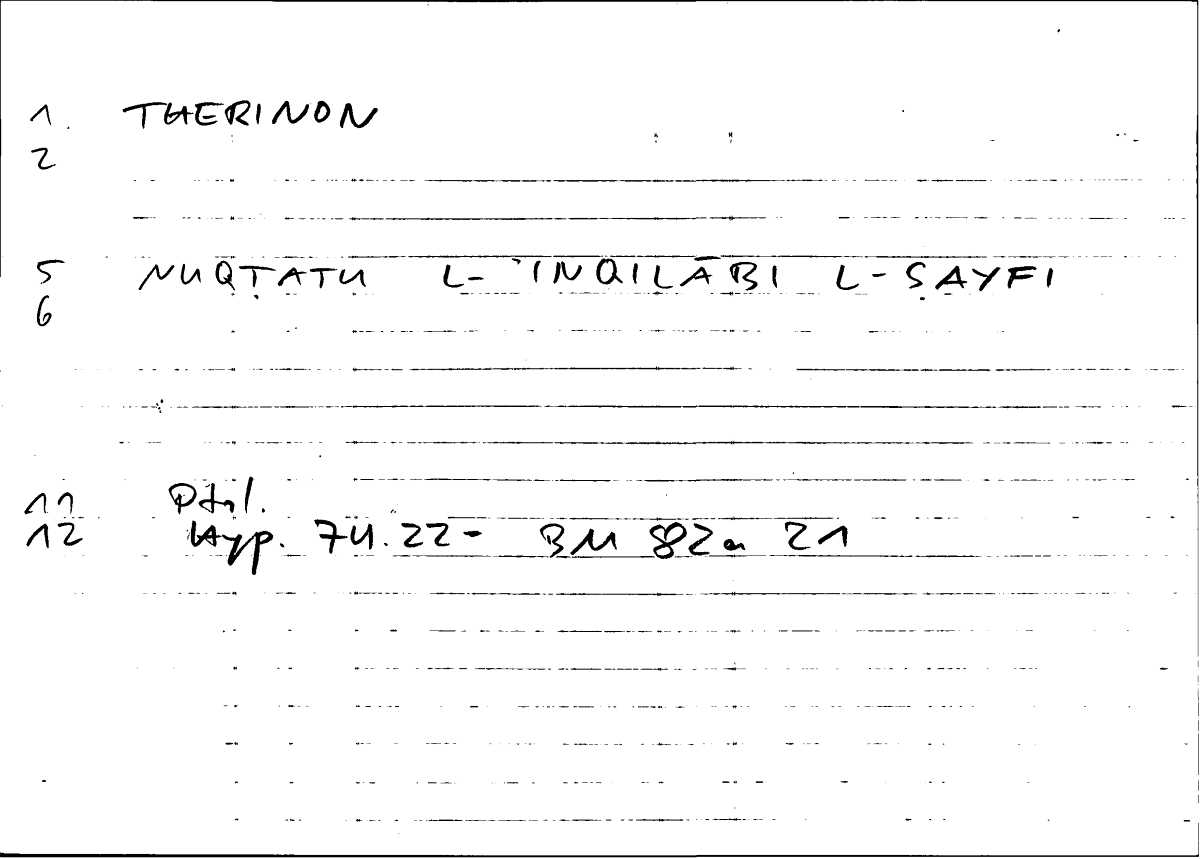 1. THERINON
2
5 NUQṬATU L-'INQILĀBI L-ṢAYFI
6
11 Ptol.
12 Hyp. 74.22- BM 82a 21